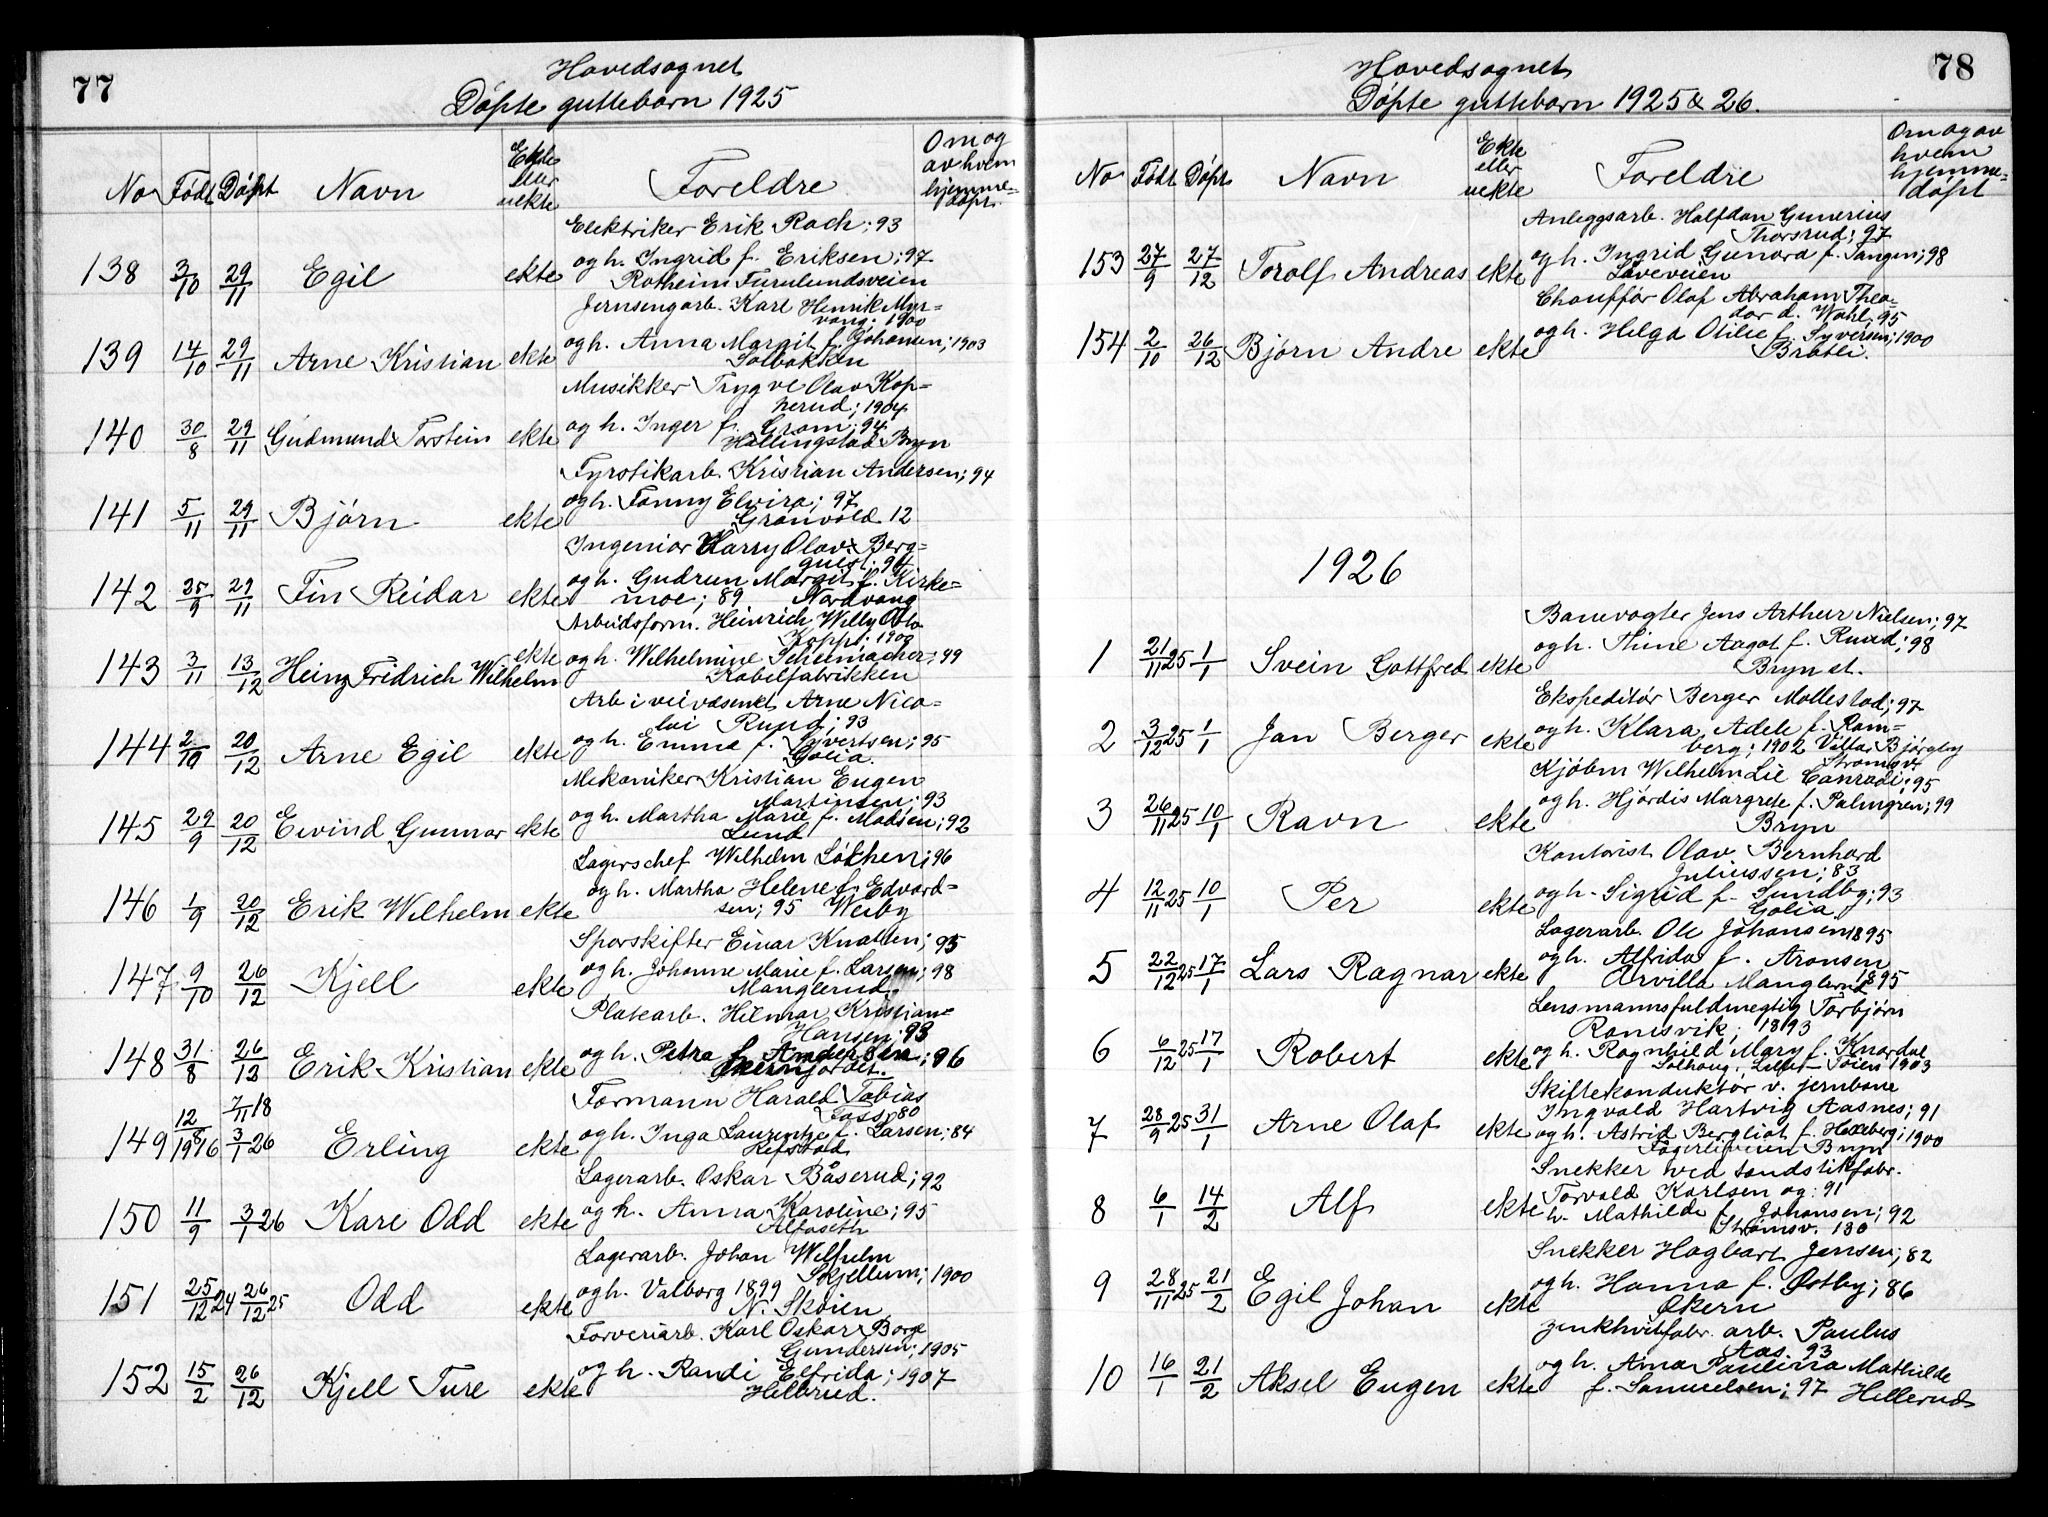 77
Hovedsognet
Døpte guttebørn 1925
No Født Døpt Navn Ekte eller uekte Foreldre Om og av hvem hjemme=døpt.
Elektriker Erik Roch; 93
138 3/10 29/11 Egil ekte og h. Ingrid f. Eriksen; 97
Rotheim Furulundsveien
Jernsengarb. Karl Henrik Myr=
vang; 1900
139 14/10 29/11 Arne Kristian ekte og h. Anna Margit f. Johansen; 1903
Solbakken
Musikker Trygve Olav Kop=
perud; 1904
140 30/8 29/11 Gudmund Torstein ekte og h. Inger f. Gram; 94
Hellingstad Bryn
Fyrstikarb. Kristian Andersen; 94
141 5/11 29/11 Bjørn ekte og h. Fanny Elvira; 97
Granvold 12
Ingeniør Harry Olav Berg=
quist; 94
142 25/9 29/11 Fin Reidar ekte og h. Gudrun Margit f. Kirke=
moe; 89 Nordvang
Arbeidsform. Heinrich Willy Otto
Kopp; 1900
143 3/11 13/12 Heinz Fridrich Wilhelm ekte og h. Wilhelmine Schumacher; 99
Kabelfabrikken
Arb i veivæsenet Arne Nico=
lai Ruud; 93
144 2/10 20/12 Arne Egil ekte og h. Emma f. Syvertsen; 95
Golia.
Mekaniker Kristian Eugen
Martinsen; 93
145 29/9 20/12 Eivind Gunnar ekte og h. Martha Marie f. Madsen; 92
Lund
Lagerschef Wilhelm Løkhen; 96
146 1/9 20/12 Erik Wilhelm ekte og h. Martha Helene f. Edvard=
sen; 95 Weiby
Sporskifter Einar Knatten; 95
147 9/10 26/12 Kjell ekte og h. Johanne Marie f. Larsen; 98
Manglerud
Platearb. Hilmar Kristian
Hansen; 93
148 31/8 26/12 Erik Kristian ekte og h. Petra f. Andersen; 96
Formann Harald Tobias
Foss; 80
149 12/8 1916 7/11 18 3/1 26 Erling ekte og h. Inga Laurentze f. Larsen; 84
Refstad
Lagerarb. Oskar Båserud; 92
150 11/9 3/1 26 Kare Odd ekte og h. Anna Karoline; 95
Alfaseth
Lagerarb. Johan Wilhelm
Skjellum; 1900
151 25/12 24 26/12 25 Odd ekte og h. Valborg 1899
N. Skøien
Farveriarb. Karl Oskar Borge
Gundersen; 1905
152 15/2 26/12 Kjell Ture ekte og h. Randi Elfrida; 1907
Hellerud.
78
Hovedsognet
Døpte guttebørn 1925 & 26.
No Født Døpt Navn Ekte eller uekte Foreldre Om og av hvem hjemme=døpt
Anleggsarb. Halfdan Gunerius
Thorsrud; 97
153 27/9 27/12 Torolf Andreas ekte og h. Ingrid Gunora f. Tangen; 98
Låveveien
Chauffør Olaf Abraham Theo=
dor d. Wahl. 95
154 2/10 26/12 Bjørn Andre ekte og h. Helga Otilie f. Syversen; 1900
Bråtli.
1926
Banevogter Jens Arthur Nielsen; 97
1 21/11 25 1/1 Svein Gottfred ekte og h. Thine Aagot f. Ruud; 98
Bryn st.
Ekspeditør Berger Mollestad; 97
2 3/12 25 1/1 Jan Berger ekte og h. Klara Adele f. Ram=
berg; 1902 Villa Bjørgby
Strømsv
Kjøbm Wilhelm Lie Conradi; 95
3 26/11 25 10/1 Ravn ekte og h. Hjørdis Margrete f. Palmgren; 99
Bryn
Kontorist Olav Bernhard
Juliussen; 83
4 12/11 25 10/1 Per ekte og h. Sigrid f. Sundby; 93
Golia
Lagerarb. Ole Johansen 1895
5 22/12 25 17/1 Lars Ragnar ekte og h. Alfrida f. Aronsen
Arvilla Manglerud 1895
Lensmannsfuldmegtig Torbjørn
Ramsvik; 1893
6 6/12 25 17/1 Robert ekte og h. Ragnhild Mary f. Knardal
Solhaug, Lille-Tøien 1903
Skiftekonduktør v. jernbane
Ingvald Hartvig Aasnes; 91
7 28/9 25 31/1 Arne Olaf ekte og h. Astrid Bergliot f. Hexeberg; 1900
Fagerliveien Bryn
Snekker ved tændstikfabr.
8 6/1 14/2 Alf ekte Torvald Karlsen og; 91
h. Mathilde f. Johansen; 92
Strømsv. 130
Snekker Hagbart Jensen; 82
9 28/11 25 21/2 Egil Johan ekte og h. Hanna f. Østby; 86
Økern
Zinkhvitfabr. arb. Paulus
Aas; 93
10 16/1 21/2 Aksel Eugen ekte og h. Anna Paulina Mathilde
f. Samuelsen; 97 Hellerud